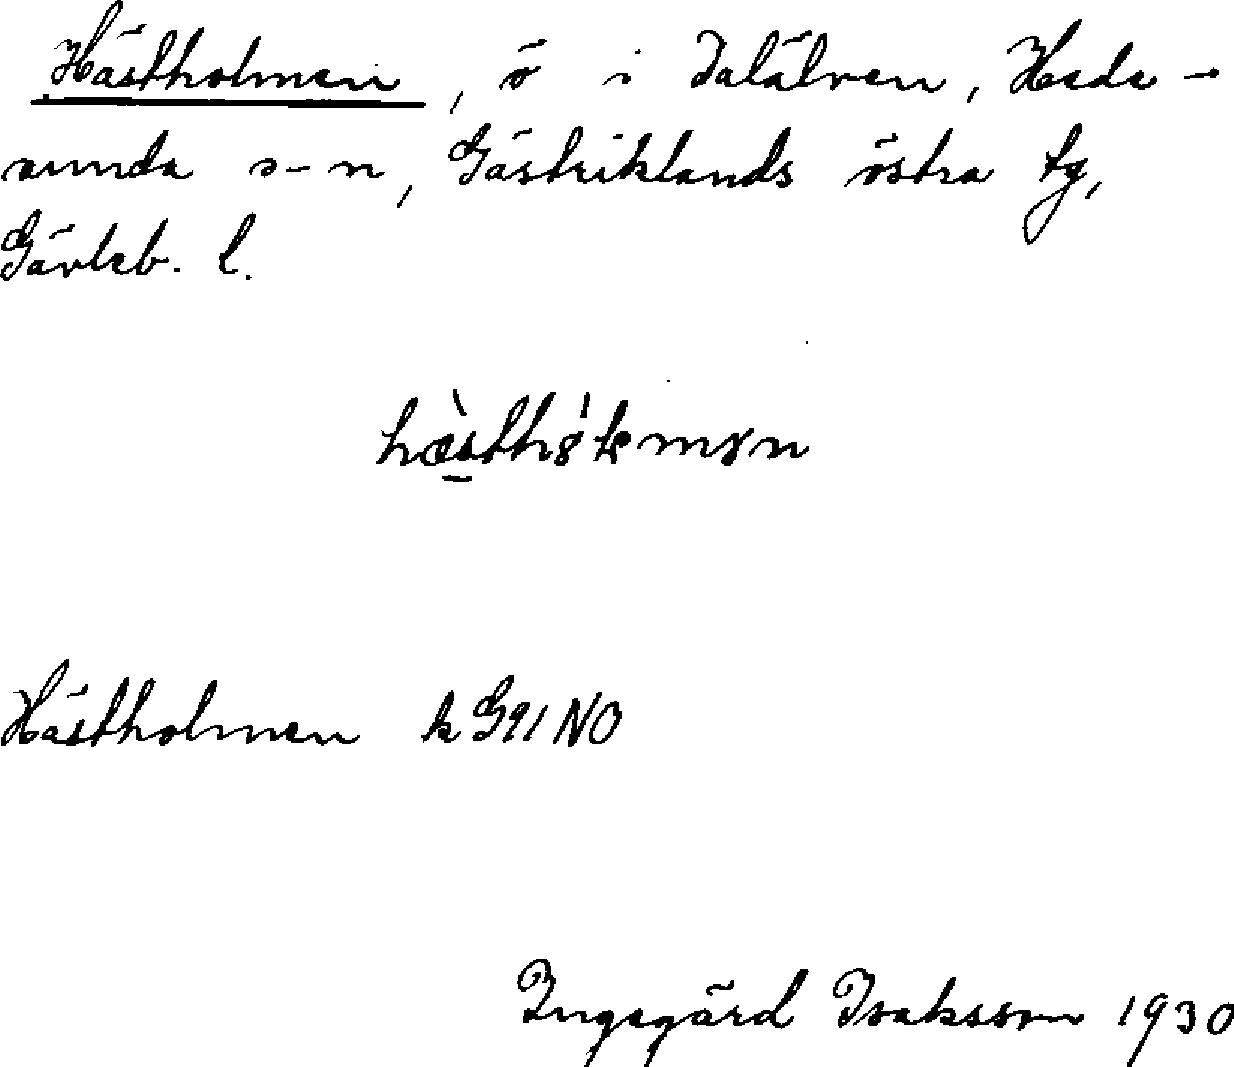 Hästholmen, ö i Dalälven, Hede-
sunda s-n, Gästriklands östra tg,
Gävleb. l.
Hästholmen k G91 NO
Ingegärd Isaksson 1930